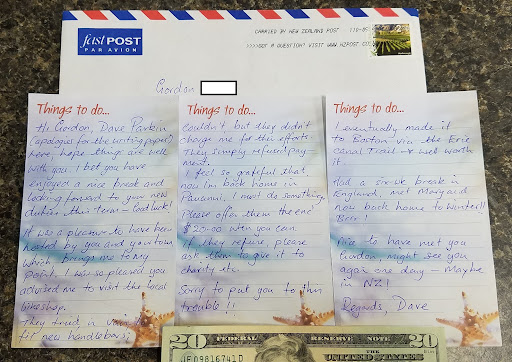 fastPOST
PAR AVION
CARRIED BY NEW ZEALAND POST
>>>>GOT A QUESTION? VISIT WWW.NZPOST.CO
Gordon
Things to do...
Hi Gordon, Dave Parkin
(apologies for the writing paper!)
here, hope things are well
with you. I bet you have
enjoyed a nice break and
looking forward to your new
duties this term - Good luck!
It was a pleasure to have been
hosted by you and your town
which brings me to my
point. I was so pleased you
advised me to visit the local
bike shop.
they tried, in vain to
fit new handlebars;
Things to do...
couldn't, but they didn't
charge me for their efforts.
They simply refused pay-
ment.
I feel so grateful that,
now I'm back home in
I must do something.
Please offer them the enc'
$20-00 when you can.
If they refuse, please
ask them to give it to
charity etc.
Sorry to put you to this
trouble!!
Things to do...
I eventually made it
to Boston via the Erie
canal Trail - & well worth
it.
Had a six-wk break in
England, met Mary and
now back home to Winter!!
Brrr!
Nice to have met you
Gordon, might see you
again one day - Maybe
in NZ!
Regards, Dave
20
FEDERAL RESERVE NOTE
THE UNITED STATES
20
JE 09816741D